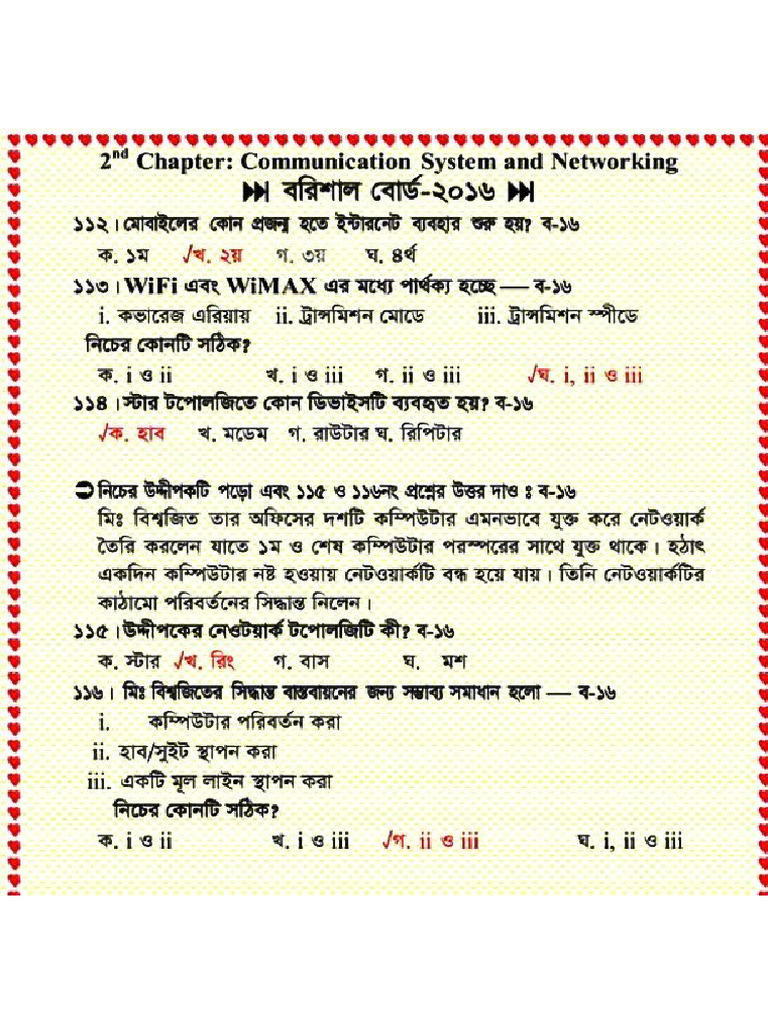 2nd Chapter: Communication System and Networking
বরিশাল বোর্ড-২০১৬
১১২। মোবাইলের কোন প্রজন্ম হতে ইন্টারনেট ব্যবহার শুরু হয়? ব-১৬
ক. ১ম √খ. ২য় গ. ৩য় ঘ. ৪র্থ
১১৩। WiFi এবং WiMAX এর মধ্যে পার্থক্য হচ্ছে — ব-১৬
i. কভারেজ এরিয়ায় ii. ট্রান্সমিশন মোডে iii. ট্রান্সমিশন স্পীডে
নিচের কোনটি সঠিক?
ক. i ও ii খ. i ও iii গ. ii ও iii √ঘ. i, ii ও iii
১১৪। স্টার টপোলজিতে কোন ডিভাইসটি ব্যবহৃত হয়? ব-১৬
√ক. হাব খ. মডেম গ. রাউটার ঘ. রিপিটার
নিচের উদ্দীপকটি পড়ো এবং ১১৫ ও ১১৬নং প্রশ্নের উত্তর দাও : ব-১৬
মিঃ বিশ্বজিত তার অফিসের দশটি কম্পিউটার এমনভাবে যুক্ত করে নেটওয়ার্ক
তৈরি করলেন যাতে ১ম ও শেষ কম্পিউটার পরস্পরের সাথে যুক্ত থাকে। হঠাৎ
একদিন কম্পিউটার নষ্ট হওয়ায় নেটওয়ার্কটি বন্ধ হয়ে যায়। তিনি নেটওয়ার্কটির
কাঠামো পরিবর্তনের সিদ্ধান্ত নিলেন।
১১৫। উদ্দীপকের নেওটয়ার্ক টপোলজিটি কী? ব-১৬
ক. স্টার √খ. রিং গ. বাস ঘ. মশ
১১৬। মিঃ বিশ্বজিতের সিদ্ধান্ত বাস্তবায়নের জন্য সম্ভাব্য সমাধান হলো — ব-১৬
i. কম্পিউটার পরিবর্তন করা
ii. হাব/সুইট স্থাপন করা
iii. একটি মূল লাইন স্থাপন করা
নিচের কোনটি সঠিক?
ক. i ও ii খ. i ও iii √গ. ii ও iii ঘ. i, ii ও iii